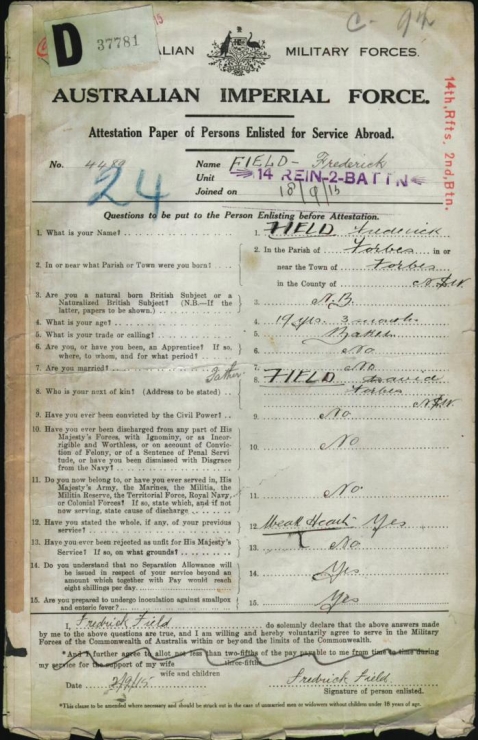 D 37781
C-94
ALIAN MILITARY FORCES.
AUSTRALIAN IMPERIAL FORCE.
Attestation Paper of Persons Enlisted for Service Abroad.
14th, Rfts. 2nd, Btn.
No. 448 Name FIELD - Frederick
24 Unit 14 REIN-2-BATTN
Joined on 18/9/15
Questions to be put to the Person Enlisting before Attestation.
1. What is your Name? 1. FIELD Frederick
2. In or near what Parish or Town were you born? 2. In the Parish of Forbes in or
near the Town of Forbes
in the County of N.S.W.
3. Are you a natural born British Subject or a
Naturalized British Subject? (N.B.—If the
latter, papers to be shown.) 3. N.B.
4. What is your age? 4. 19 yrs. 3 months
5. What is your trade or calling? 5. Baker
6. Are you, or have you been, an Apprentice? If so,
where, to whom, and for what period? 6. No
7. Are you married? 7. No
Father
8. Who is your next of kin? (Address to be stated) 8. FIELD David
Forbes
N.S.W.
9. Have you ever been convicted by the Civil Power? 9. No
10. Have you ever been discharged from any part of His
Majesty's Forces, with Ignominy, or as Incor-
rigible and Worthless, or on account of Convic-
tion of Felony, or of a Sentence of Penal Servi-
tude, or have you been dismissed with Disgrace
from the Navy? 10. No
11. Do you now belong to, or have you ever served in, His
Majesty's Army, the Marines, the Militia, the
Militia Reserve, the Territorial Force, Royal Navy,
or Colonial Forces? If so, state which, and if not
now serving, state cause of discharge 11. No
12. Have you stated the whole, if any, of your previous
service? 12. Weak Heart Yes
13. Have you ever been rejected as unfit for His Majesty's
Service? If so, on what grounds? 13. No
14. Do you understand that no Separation Allowance will
be issued in respect of your service beyond an
amount which together with Pay would reach
eight shillings per day. 14. Yes
15. Are you prepared to undergo inoculation against smallpox
and enteric fever? 15. Yes
I, Fredrick Field do solemnly declare that the above answers made
by me to the above questions are true, and I am willing and hereby voluntarily agree to serve in the Military
Forces of the Commonwealth of Australia within or beyond the limits of the Commonwealth.
*And I further agree to allot not less than two-fifths of the pay payable to me from time to time during
three-fifths
my service for the support of my wife
wife and children
Date 2/9/15 Fredrick Field
Signature of person enlisted.
*This clause to be amended where necessary and should be struck out in the case of unmarried men or widowers without children under 18 years of age.